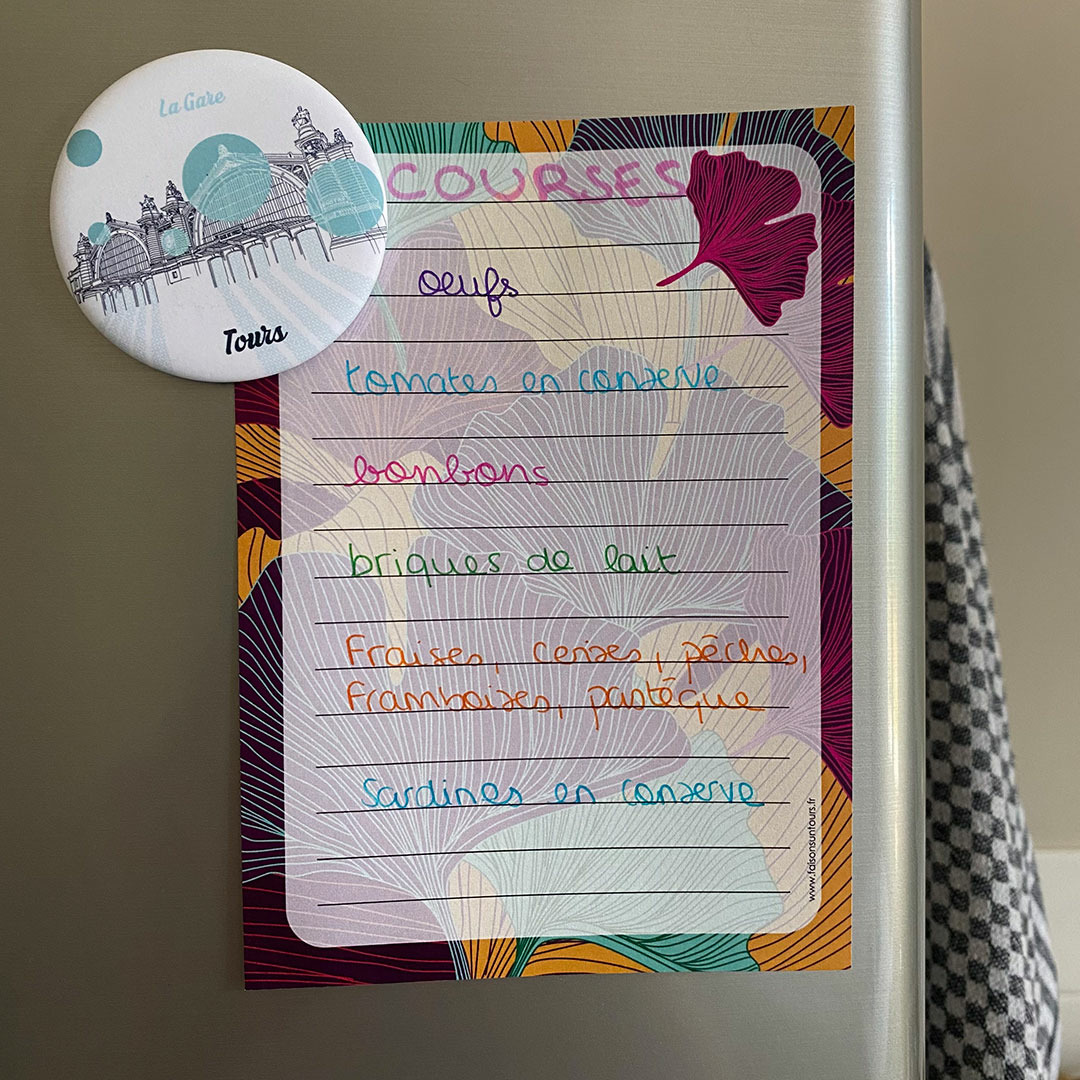 La Gare
Tours
COURSES
oeufs
tomates en conserve
bonbons
briques de lait
Fraises, cerises, pêches,
Framboises, pastèque
Sardines en conserve
www.faisonsuntours.fr